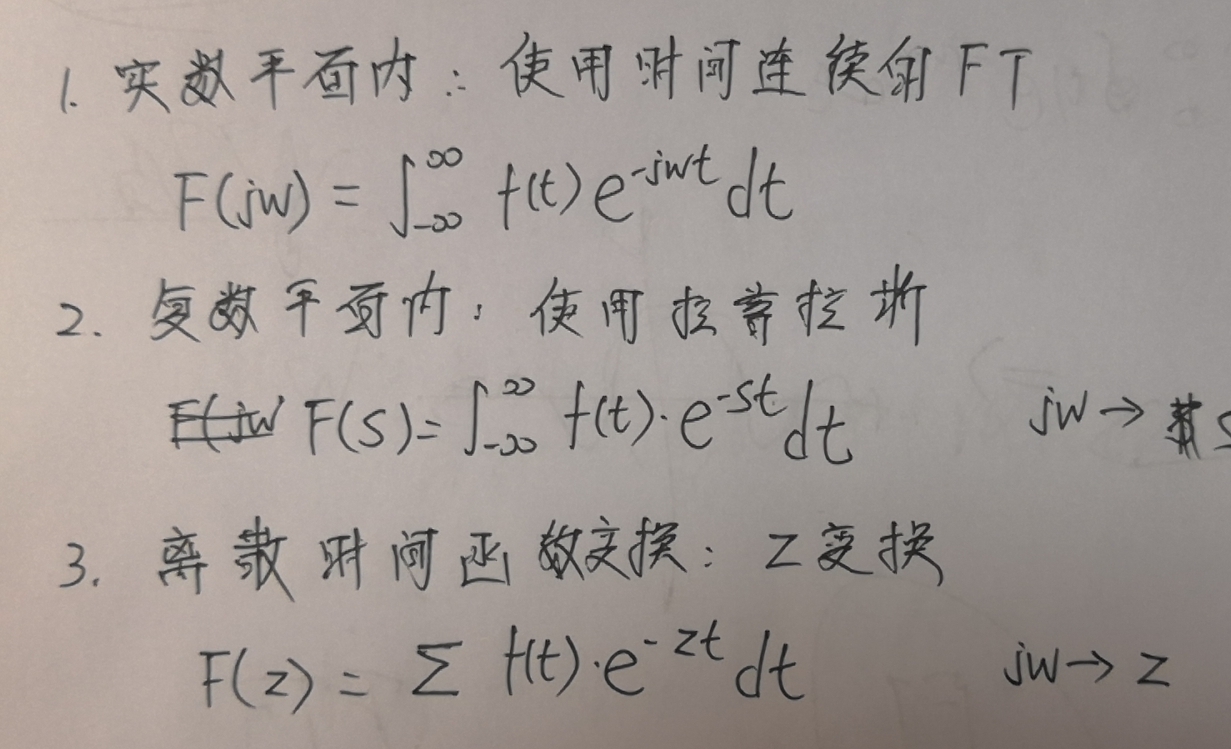 1. 实数平面内：使用时间连续的FT
F(jw) = ∫_{-∞}^{∞} f(t) e^{-jwt} dt
2. 复数平面内：使用拉普拉斯
F(jw F(s) = ∫_{-∞}^{∞} f(t)·e^{-st} dt jw → s
3. 离散时间函数变换：Z变换
F(z) = Σ f(t)·e^{-zt} dt jw → z